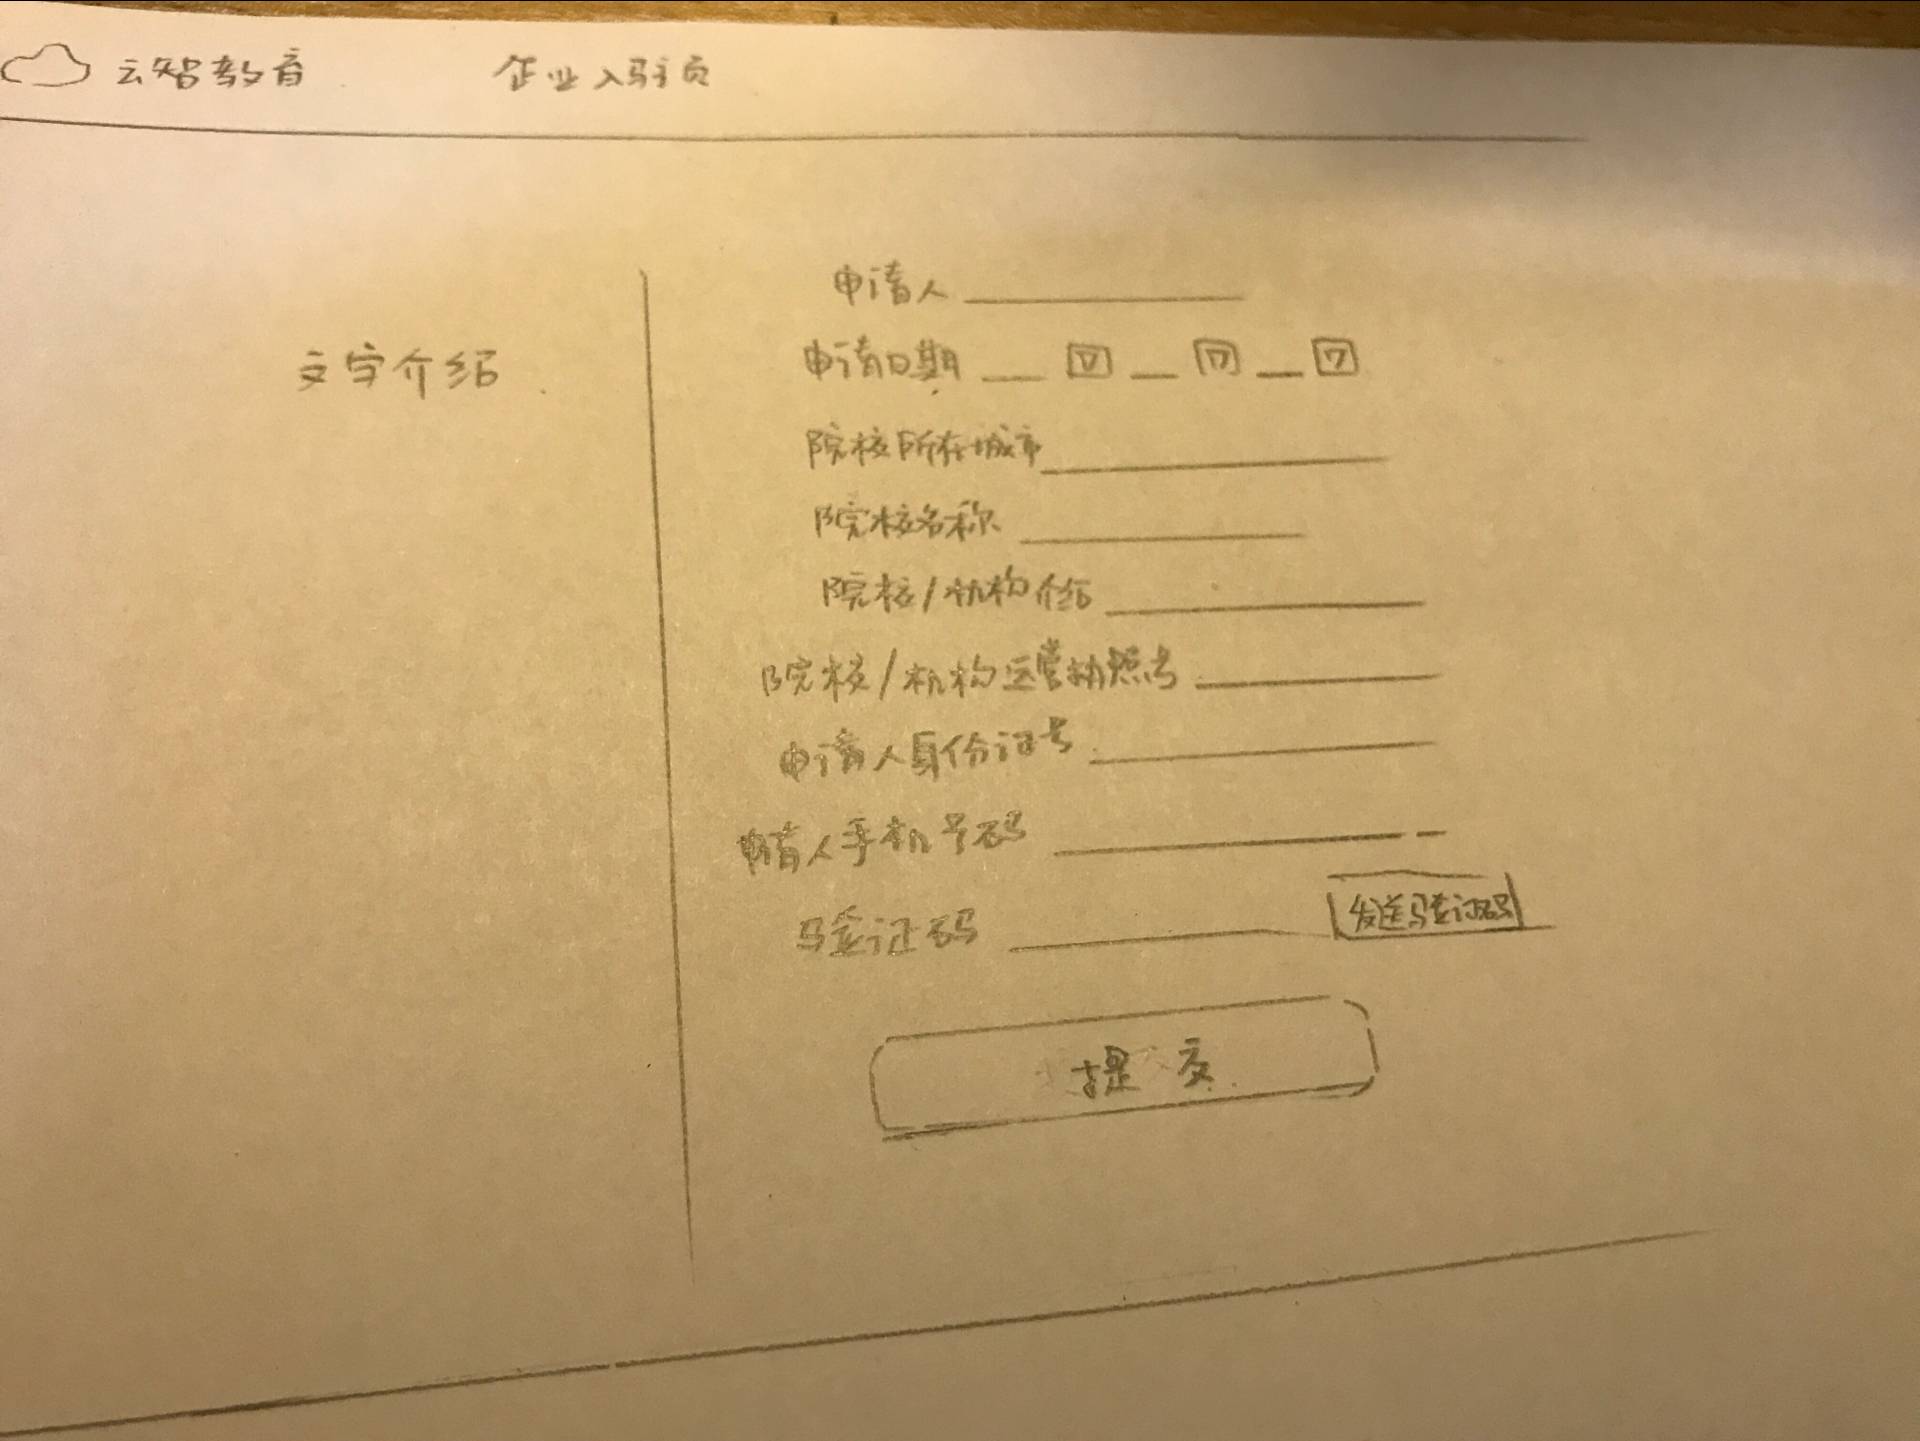 云智教育 企业入驻页
文字介绍
申请人
申请日期
院校所在城市
院校名称
院校/机构介绍
院校/机构运营执照号
申请人身份证号
申请人手机号码
验证码 发送验证码
提交